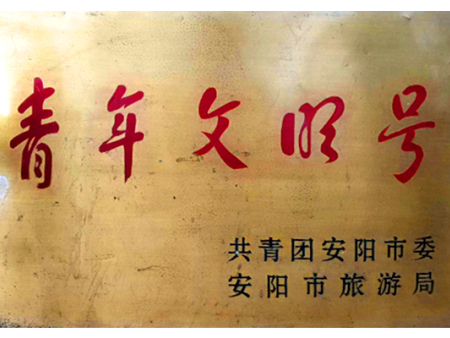 青年文明号
共青团安阳市委
安阳市旅游局